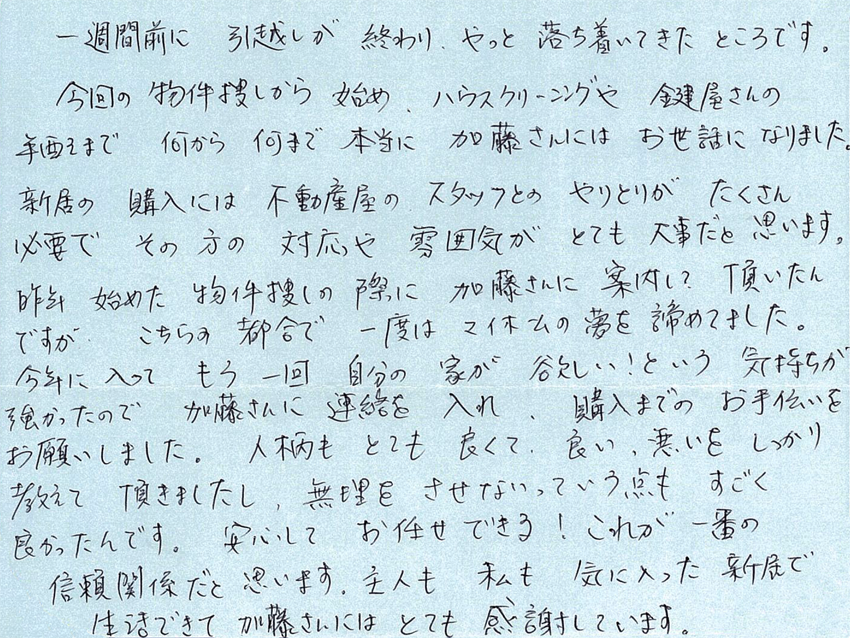 一週間前に 引越しが 終わり、やっと 落ち着いてきた ところです。
今回の 物件捜しから 始め、ハウスクリーニングや 鍵屋さんの
手配まで 何から 何まで 本当に 加藤さんには お世話に なりました。
新居の 購入には 不動産屋の スタッフとの やりとりが たくさん
必要で その 方の 対応や 雰囲気が とても 大事だと 思います。
昨年 始めた 物件捜しの 際に 加藤さんに 案内して 頂いたん
ですが、こちらの 都合で 一度は マイホームの 夢を 諦めてました。
今年に 入って もう 一回 自分の 家が 欲しい!という 気持ちが
強かったので 加藤さんに 連絡を 入れ、購入までの お手伝いを
お願いしました。人柄も とても 良くて、良い、悪いを しっかり
教えて 頂きましたし、無理を させないっていう点も すごく
良かったんです。安心して お任せできる!これが 一番の
信頼関係だと 思います。主人も 私も 気に入った 新居で
生活できて 加藤さんには とても 感謝しています。